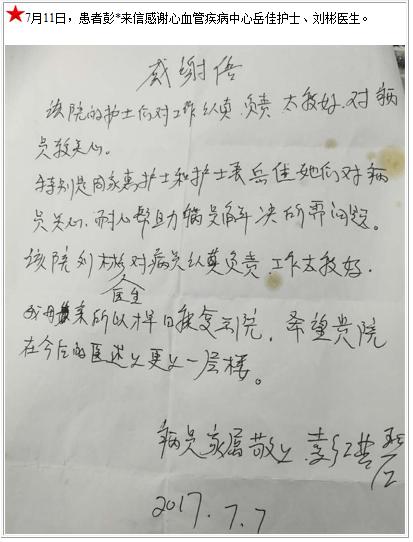 ★7月11日，患者彭*来信感谢心血管疾病中心岳佳护士、刘彬医生。
感谢信
该院的护士们对工作认真,负责 太较好.对病
员较关心。
特别是周家惠护士和护士长岳佳她们对病
员关心.耐心帮助病员解决所需问题。
该院刘彬对病员认真负责.工作太较好.
医生
我母亲所以早日康复出院，希望贵院
在今后的医述上更上一层楼。
病员家属敬上
2017.7.7